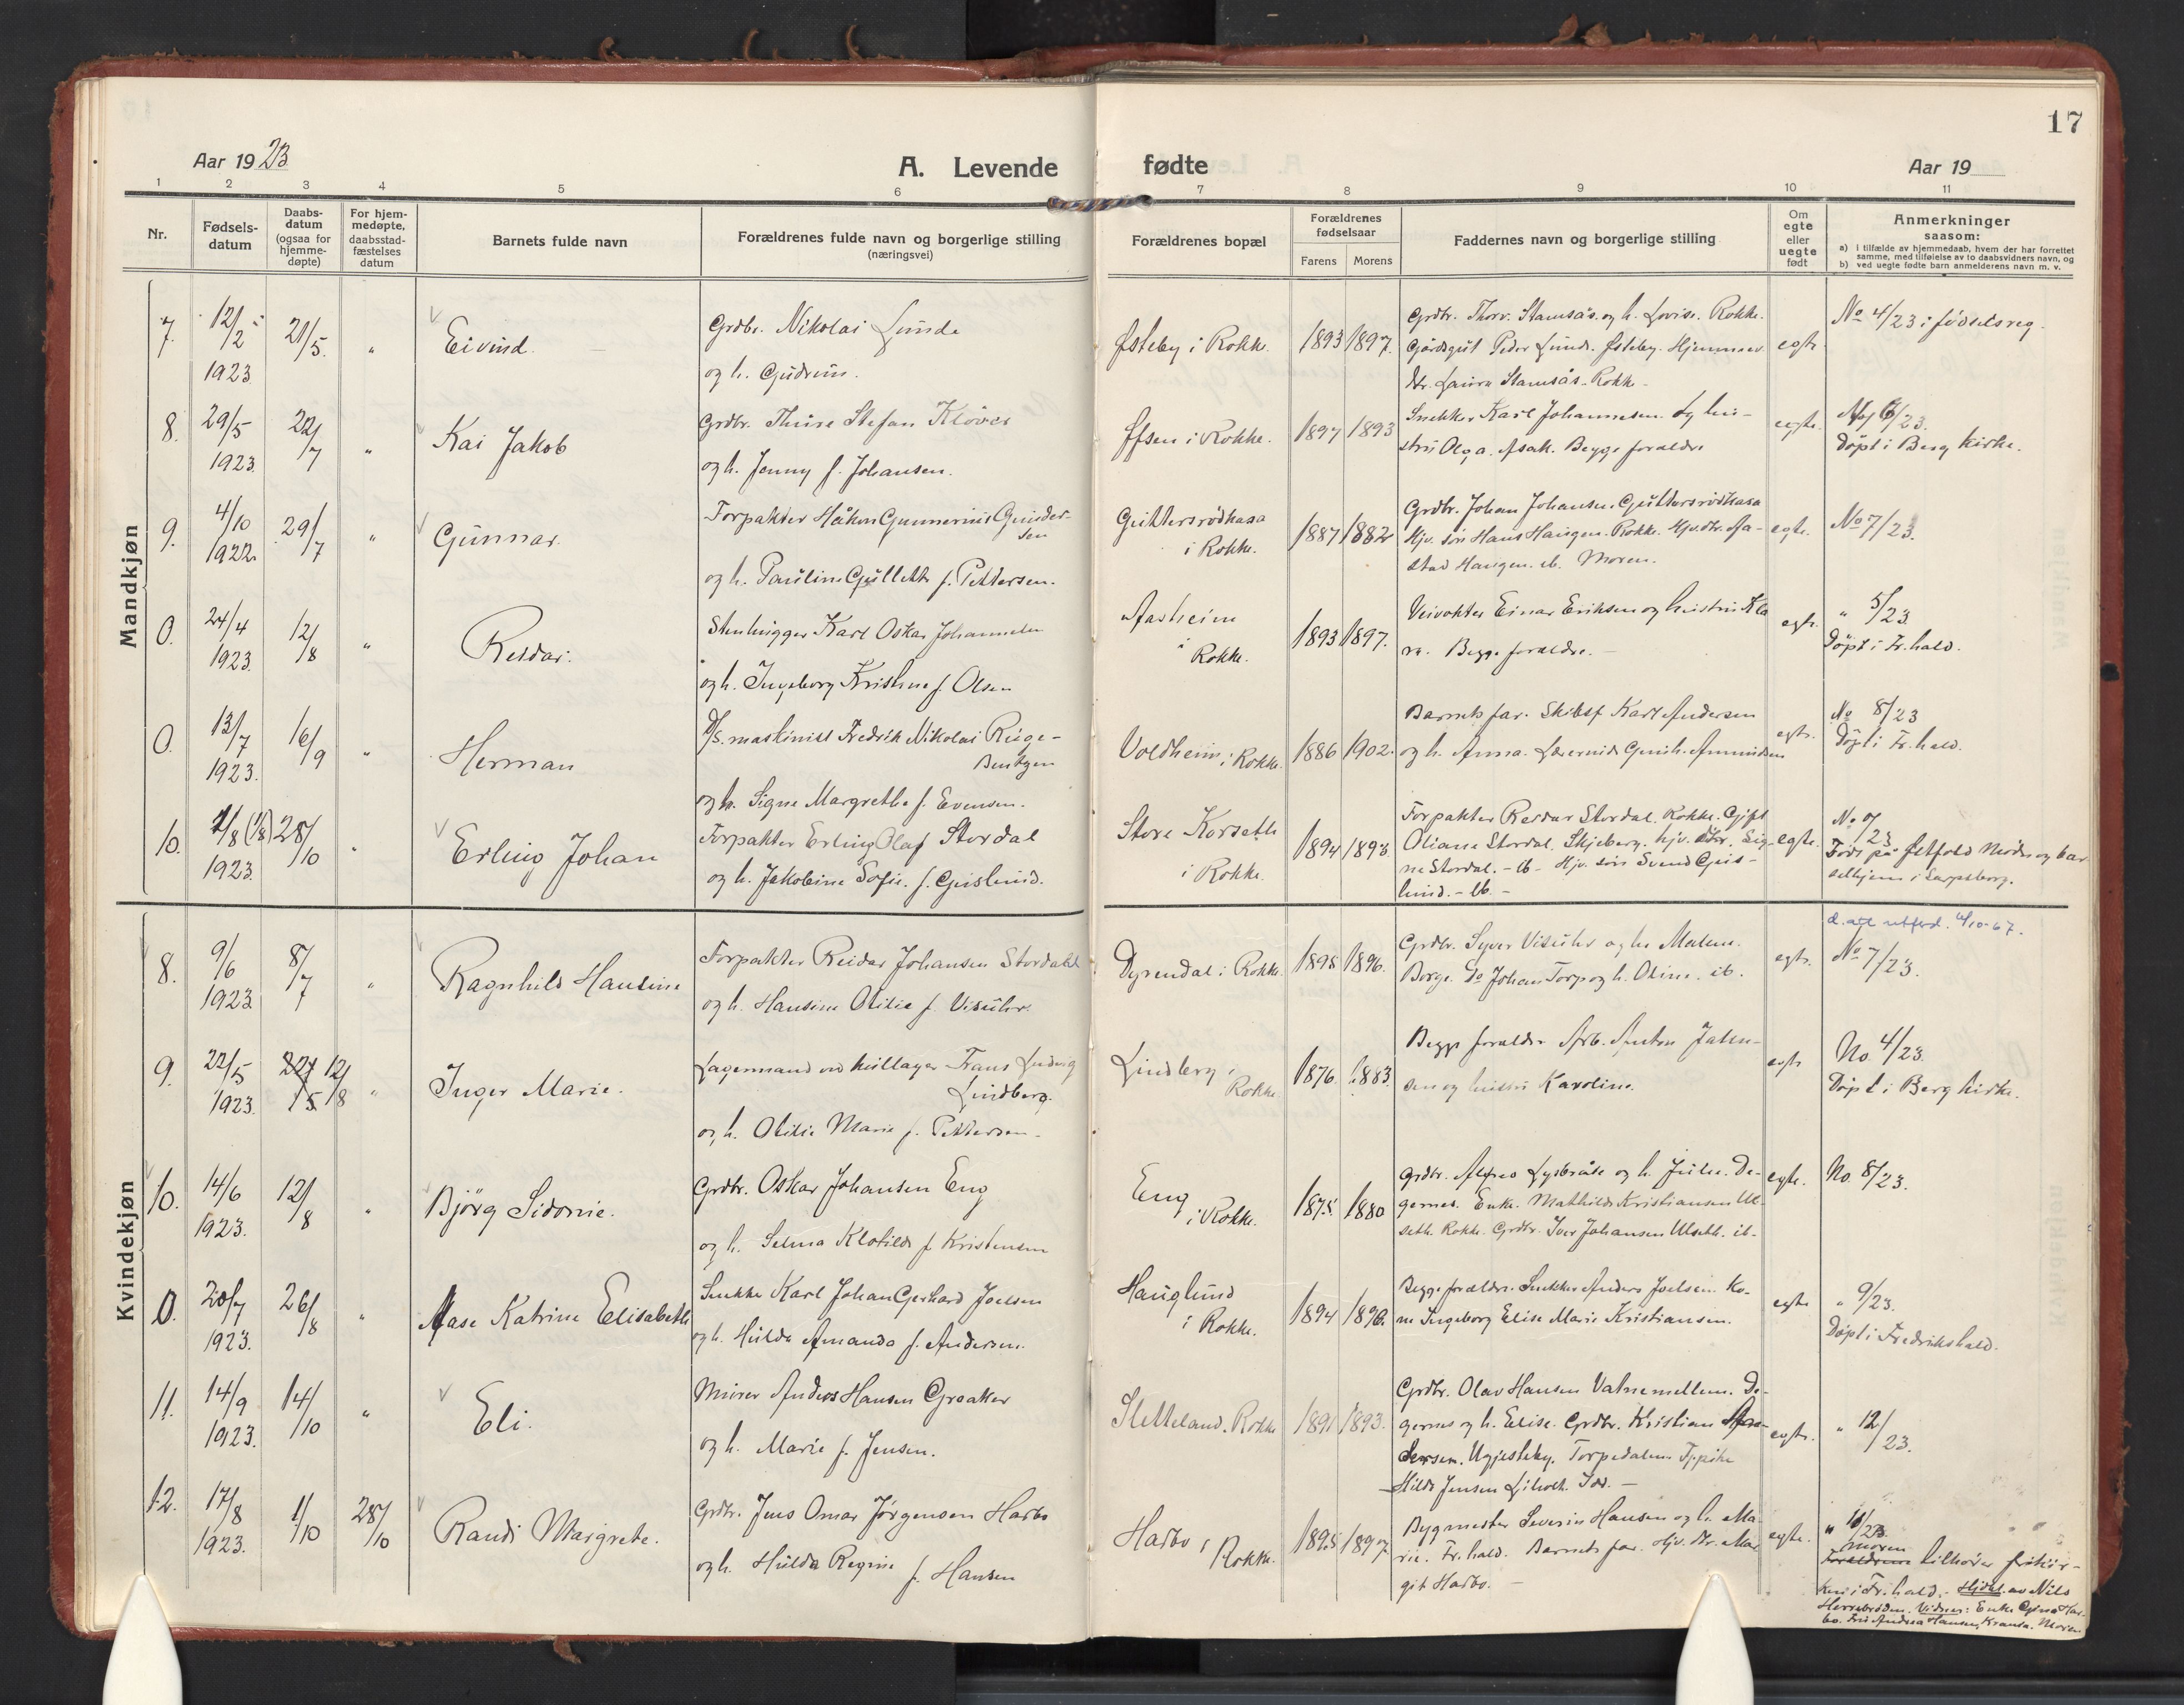 17
Aar 1923
A. Levende
fødte
Aar 19
1 2 3 4 5 6 7 8 9 10 11
Nr.
Fødsels-
datum
Daabs-
datum
(ogsaa for
hjemme-
døpte)
For hjem-
medøpte,
daabsstad-
fæstelses
datum
Barnets fulde navn
Forældrenes fulde navn og borgerlige stilling
(næringsvei)
Forældrenes bopæl
Forældrenes
fødselsaar
Farens Morens
Faddernes navn og borgerlige stilling
Om
egte
eller
uegte
født
Anmerkninger
saasom:
a) i tilfælde av hjemmedaab, hvem der har forrettet
samme, med tilføielse av to daabsvidners navn, og
b) ved uegte fødte barn anmelderens navn m. v.
Mandkjøn
7. 12/2 1923 21/5. " Eivind.
Grdbr. Nikolai Lunde
og h. Gudrun.
Østeby i Rokke. 1893 1897.
Grdbr. Thorv. Stamsås og h. Lovise. Rokke.
Gårdsgut Peder Lunde. Østeby. Hjemmev.
dtr. Laura Stamsås - Rokke -
egte
No 4/23 i fødselsreg.
8. 29/5 1923 22/7 " Kai Jakob
Grdbr. Thure Stefan Kløver
og h. Jenny f. Johansen.
i Rokke. 1897 1893
Snekker Karl Johannesen. og hu-
stru Olga. Asak. Begge forældre
egte.
6/23.
Døpt i Berg kirke.
9. 4/10 1922. 29/7 " Gunnar.
Forpakter Håkon Gunnerius Gunder-
sen
og h. Pauline Gullette f. Pettersen.
i Rokke. 1887 1882
Grdbr. Johan Johansen.
Hjv. søn Hans Haugen. Rokke. Hjv. dtr. Aa-
stad Haugen. ib. Moren.
egte.
No 7/23.
0. 24/4 1923. 12/8 " Reidar.
Stenhugger Karl Oskar Johannesen
og h. Ingeborg Kristine f. Olsen
Aasheim
i Rokke. 1893 1897.
Veivokter Einar Eriksen og hustru Kla
ra. Begge forældre. -
egte.
" 5/23.
Døpt i Fr.hald.
0. 13/7 1923. 16/9 " Herman
D/S. maskinist Fredrik Nikolai Ringe-
Bentzen
og h. Signe Margrethe f. Evensen.
Voldheim i Rokke. 1886 1902.
Barnets far. Skibsf Karl Andersen
og h. Anna. Amundsen
egte.
No 8/23
Døpt i Fr.hald.
10. 1/8 (1/8) 1923. 28/10 " Erling Johan
Forpakter Erling Olaf Stordal
og h. Jakobine Sofie. f. Geislund.
Store Korseth
i Rokke. 1894 1893.
Forpakter Reidar Stordal. Rokke. Gift
Oliane Stordal. Skjeberg. hjv. dtr. Sig-
ne Stordal. - ib - Hjv. søn Svend Geis-
lund. - ib. -
egte.
No 9/23
Født på Østfold Mødre og bar
selhjem i Sarpsborg.
Kvindekjøn
8. 9/6 1923 8/7 " Ragnhild Hansine
Forpakter Reidar Johansen Stordahl
og h. Hansine Otilie f. Visuhr.
Dyrendal i Rokke. 1898 1896.
Grdbr. Syver Visuhr og h. Malene.
Borge. Do Johan Torp og h. Oline. ib.
egte.
d. att. utferd. 4/10-67.
No 7/23.
9. 22/5 1923. 12/8 " Inger Marie.
Lagermand ved kullager Frans Ludvig
Lindberg.
og h. Otilie Marie f. Pettersen.
Lindberg i
Rokke. 1876. 1883.
Begge forældre Arb. Anton Jahn-
sen og hustru Karoline.
egte
No. 4/23.
Døpt i Berg kirke.
10. 14/6 1923. 12/8 " Björg Sidonie.
Grdbr. Oskar Johansen Eng
og h. Selma Klotilde f. Kristensen
Eng
i Rokke. 1875. 1880
Grdbr. Alfred Lysbråte og h. Julie. De-
gernes. Enke. Mathilde Kristiansen Ul-
seth. Rokke. Grdbr. Iver Johansen Ulseth. ib.
egte.
No. 8/23.
0. 20/7 1923. 26/8 " Aase Katrine Elisabeth
Snekker Karl Johan Gerhard Joelsen
og h. Hulda Amanda f. Andersen.
Hauglund
i Rokke. 1894 1896.
Begge forældre. Snekker Anders Joelsen. Ko-
ne Ingeborg Elise Marie Kristiansen.
egte
" 9/23.
Døpt i Fredrikshald.
11. 14/9 1923. 14/10 " Eli.
Murer Anders Hansen Greaker
og h. Marie f. Jensen.
Sletteland. Rokke 1891 1893.
Grdbr. Olav Hansen Vatnemellem. De-
gernes og h. Elise. Grdbr. Kristian An-
dersen. Torpedalen
Hilda Jensen Idd. -
egte.
" 12/23.
12. 17/8 1923. 1/10 28/10 Randi Margrete.
Grdbr. Jens Omar Jørgensen Harbo
og h. Hulda Regine f. Hansen
Harbo i Rokke. 1895 1897.
Bygmester Severin Hansen og h. Ma-
rie. Fr.hald. Barnets far. Hjv. dtr. Mar
git Harbo. -
egte.
" 11/23.
moren
forældrene tilhører frikir-
ken i Fr.hald. - Hjdøbt av Nils
Herrebrøden. Vidner: Enke Gina Har-
bo. Frk Andrea Hansen, Moren